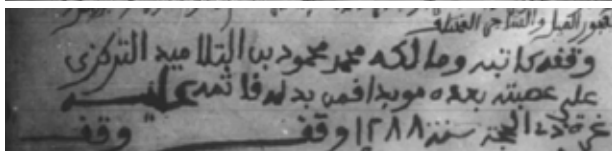 وقفه كاتبه ومالكه محمد محمود بن التلاميد التركزى
على عصبته بعده موبدا فمن بدله فاثمه عليه
غرة ذى الحجة سنة ١٢٨٨ وقف وقف